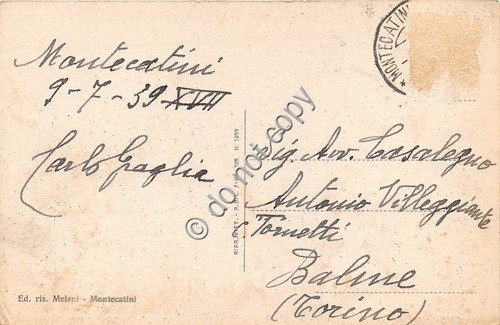 Montecatini
9-7-39 XVII
Carlo Gaglia
MONTECATINI
Sig. Avv. Casalegno
Antonio Villeggiante
Tornetti
Balme
(Torino)
Ed. ris. Melani - Montecatini
do not copy